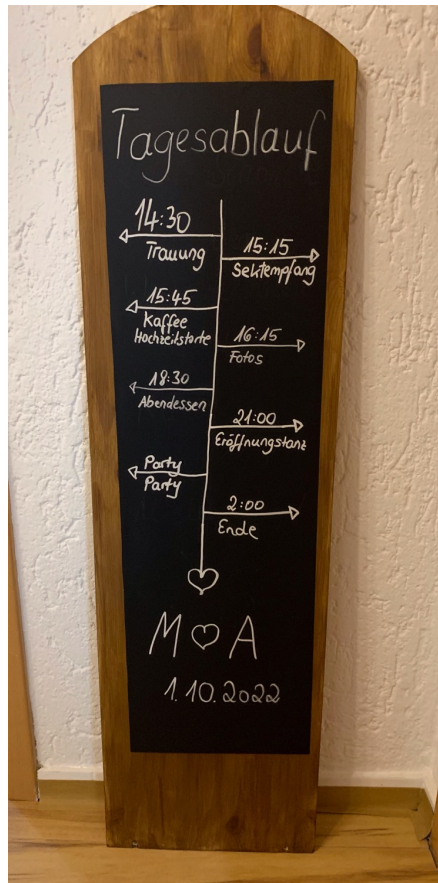 Tagesablauf
14:30
Trauung
15:15
Sektempfang
15:45
Kaffee
Hochzeitstorte
16:15
Fotos
18:30
Abendessen
21:00
Eröffnungstanz
Party
Party
2:00
Ende
M ♡ A
1.10.2022